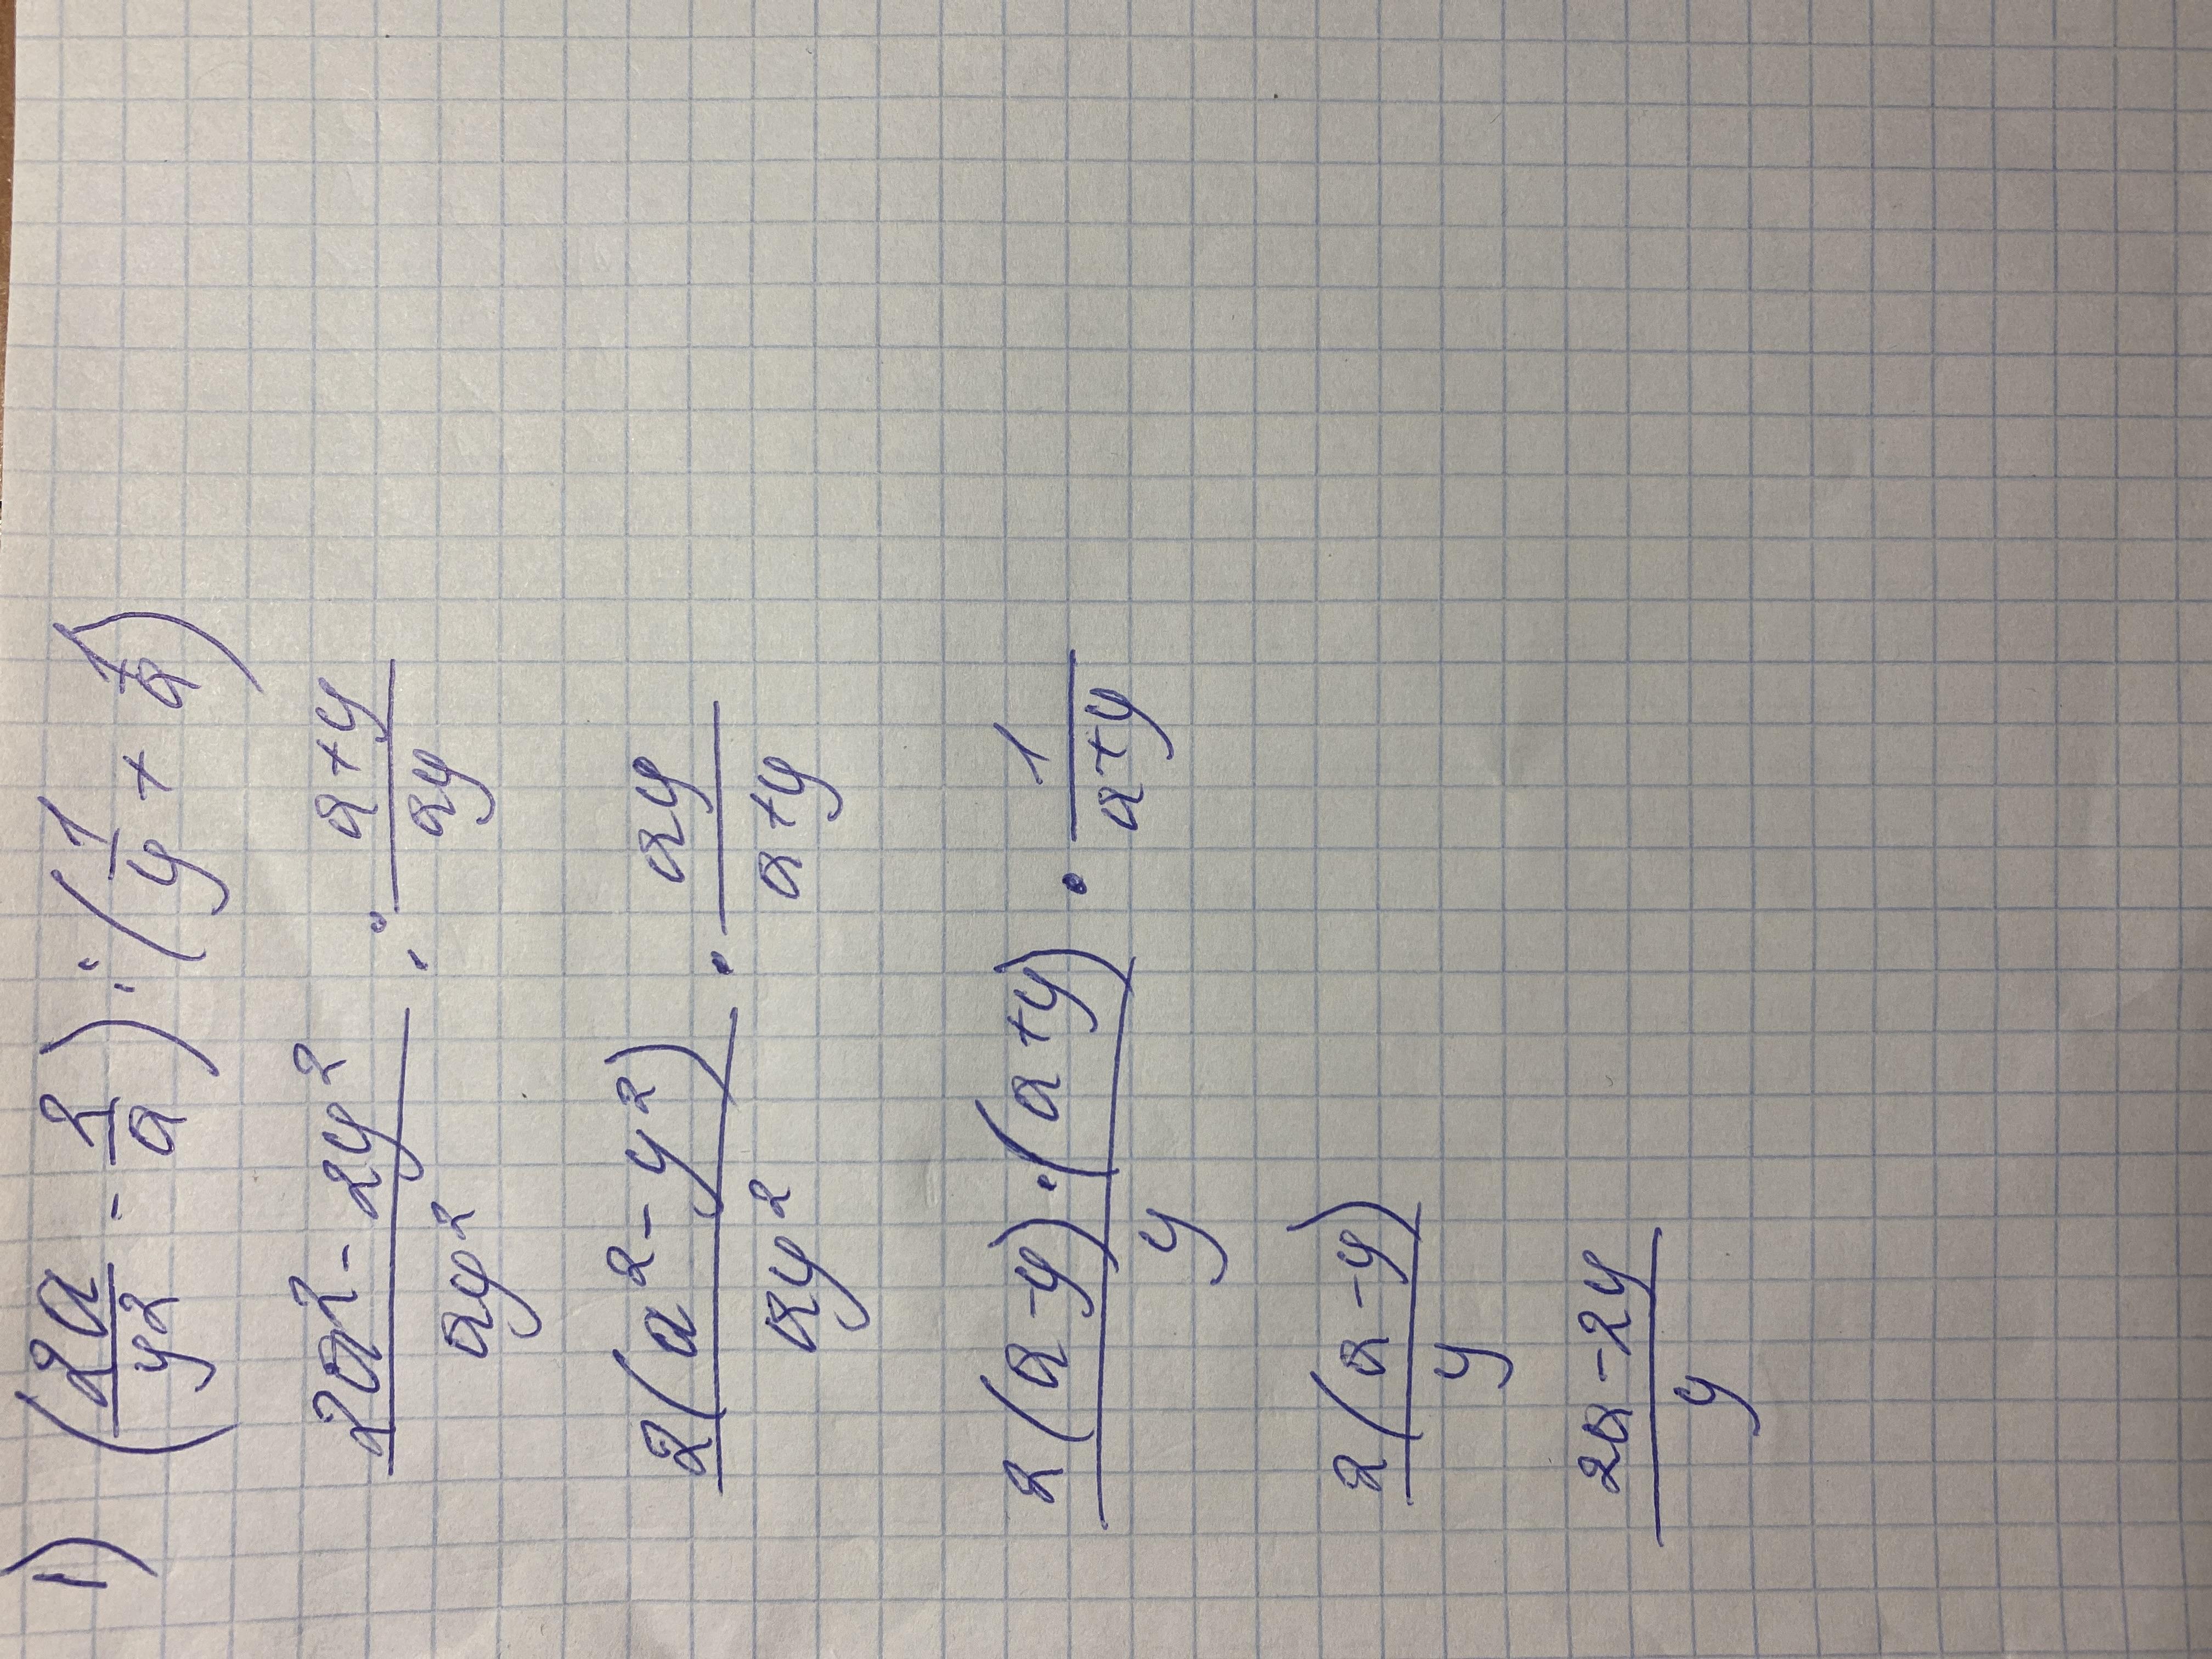 1) (2a/y² - 2/a) : (1/y + 1/a)
(2a² - 2y²)/(ay²) : (a+y)/(ay)
2(a² - y²)/(ay²) · (ay)/(a+y)
2(a-y)·(a+y)/y · 1/(a+y)
2(a-y)/y
(2a-2y)/y